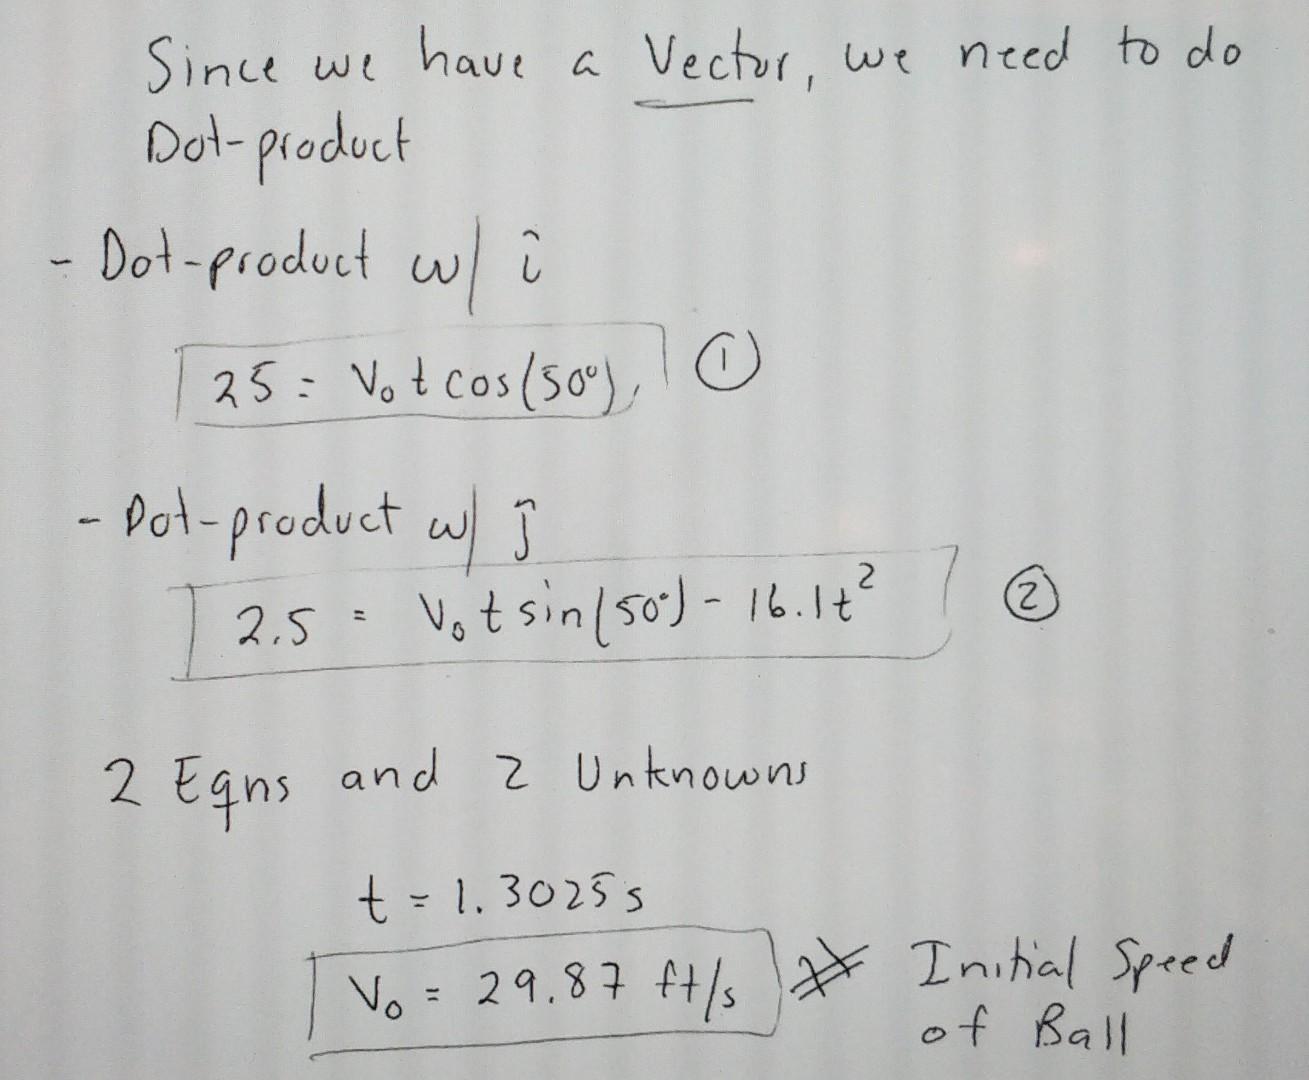 Since we have a Vector, we need to do
Dot-product
- Dot-product w/ î
25 = V₀ t cos(50°), ①
- Dot-product w/ ĵ
2.5 = V₀ t sin(50°) - 16.1t² ②
2 Eqns and 2 Unknowns
t = 1.3025 s
V₀ = 29.87 ft/s Initial Speed
of Ball